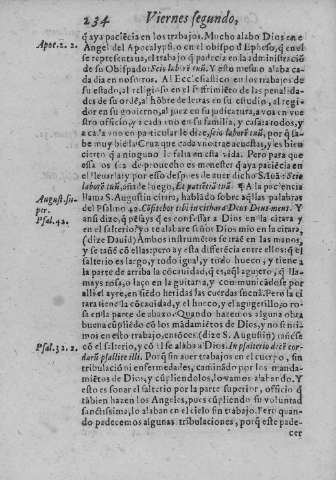 234 Viernes segundo,
q̃ aya paciẽcia en los trabajos. Mucho alabo Dios en el
Apoc. 2. 2.
Angel del Apocalypsi o en el obispo d Epheso, q̃ en el
se representaua, el trabajo q̃ padecia en la administraciõ
de su Obispado: Scio laborẽ tuũ. Y esto mesmo alaba cada
dia en nosotros. Al Ecclesiastico en los trabajos de
su estado, al religioso en el suffrimiẽto de las penalidades
de su ordẽ, al hõbre de letras en su estudio, al regidor
en su gouierno, al juez en su judicatura, a vos en vuestro
officio, y a cada vno en su familia, y casa: a todos, y
a cada vno en particular le dize, scio laborẽ tuũ, por q̃ sabe
muy biẽ la Cruz que cada vno trae acuestas, y es bien
cierto q̃ a ninguno le falta en esta vida. Pero para que
essa os sea de prouecho es menester q̃ aya paciẽcia en
el lleuarla: y por esso despues de auer dicho S. Iuã: Scio
laborẽ tuũ, añade luego, Et patiẽtiã tuã. ¶ A la paciencia
August. super.
Psal. 42.
llama S. Augustin citara, hablãdo sobre aq̃llas palabras
del Psalmo 42. Cõfitebor tibi in cithara Deus Deus meus. Y
ansi dize, q̃ pẽsays q̃ es confessar a Dios en la citara y
en el psalterio? yo te alabare señor Dios mio en la citara,
(dize Dauid) Ambos instrumentos se traẽ en las manos,
y se tañẽ cõ ellas: pero ay esta differẽcia entre ellos: q̃ el
psalterio es largo, y todo igual, y todo hueco, y tiene a
la parte de arriba la cõcauidad, q̃ es, aq̃l agujero, q̃ llamays
rosa, o laço en la guitarra, y comunicãdose por
alli el ayre, en siẽdo heridas las cuerdas suenã. Pero la citara
tiene la cõcauidad, y el hueco, y el agugerillo, o rosa
en la parte de abaxo. Quando hazemos alguna obra
buena cũpliẽdo cõ los mãdamiẽtos de Dios, y no sentimos
en esto trabajo, entõces (dize S. Augustin) tañese
Psal. 32. 2.
cõ el psalterio, y cõ el se alaba a Dios. In psalterio decẽ cordarũ
psallite illi. Porq̃ sin auer trabajos en el cuerpo, sin
tribulaciõ ni enfermedades, caminãdo por los mandamiẽtos
de Dios, y cũpliendolos, lo vamos alabando. Y
esto es sonar el psalterio por la parte superior, officio q̃
tãbien hazen los Angeles, pues cũpliendo su voluntad
sanctissima, lo alaban en el cielo sin trabajo. Pero quando
padecemos algunas tribulaciones, porq̃ este pade-
cer